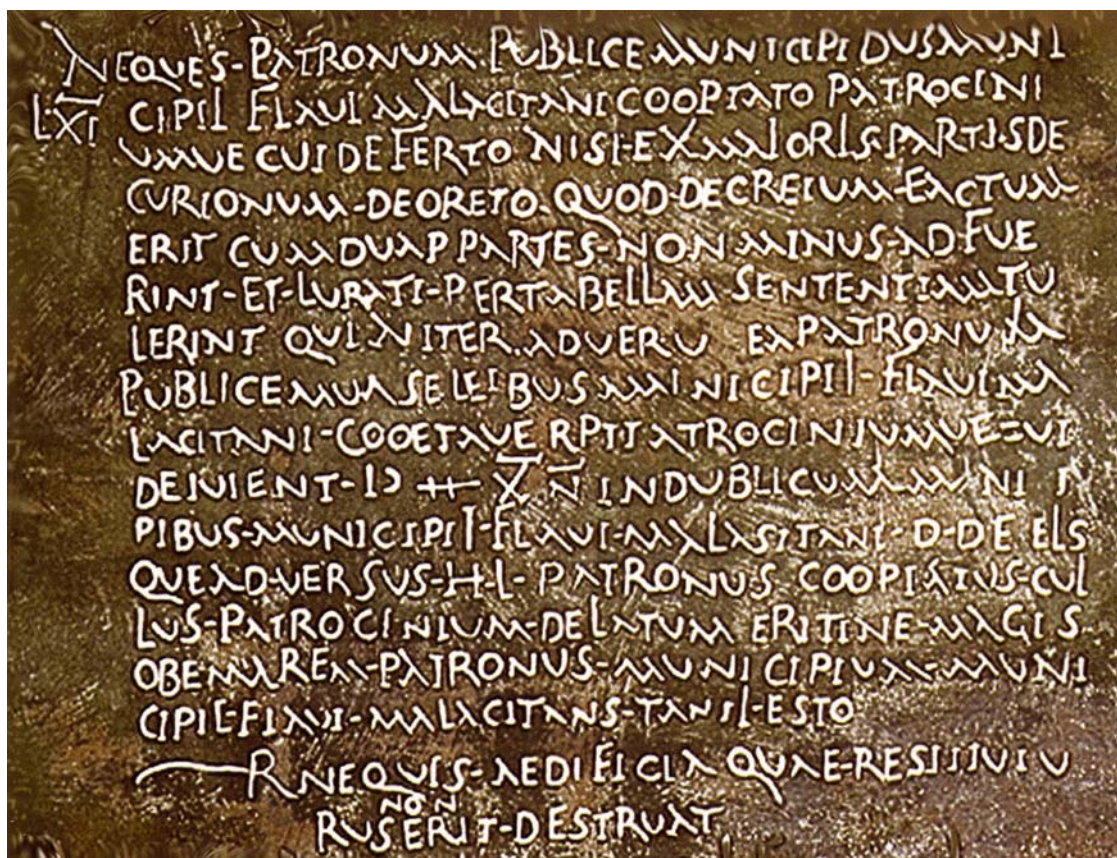 NEQUES-PATRONUM PUBLICEMUNICIPIDUSMUNI
LXI CIPIL FLAUI MALACITANI COOPTATO PATROCINI
UMUE CUIDEFERTO NISI-EXMAIORIS-PARTISDE
CURIONUM-DEORETO QUOD-DECREIUM-EACTUM
ERIT CUMDUAPPARTES-NONMINUS-AD-FUE
RINT-ET-LURATI-PERTABELLAM SENTENTIAMTU
LERINT QUI NITER.ADUERU EAPATRONUM
PUBLICEMUNSELEIBUSMINICIPII-FLAUIMA
LACITANI-COOETAUERPTIATROCINIUMUE=UI
DEIUIENT-IↃ X N INDUBLICUMMUNI
PIBUS-MUNICIPII-FLAUI-MALASITANI-D-DE ELS
QUEAD-UERSUS-H-L-PATRONUS COOPIATUS-CUL
LUS-PATROCINIUM-DELATUM ERITINE-MAGIS
OBEMREM-PATRONUS-MUNICIPIUM-MUNI
CIPIL-FLAUI-MALACITANS-TANSI-ESTO
R NEQUIS-AEDIFICIA QUAE-RESIIUIU
NON
RUSERIT-DESTRUAT